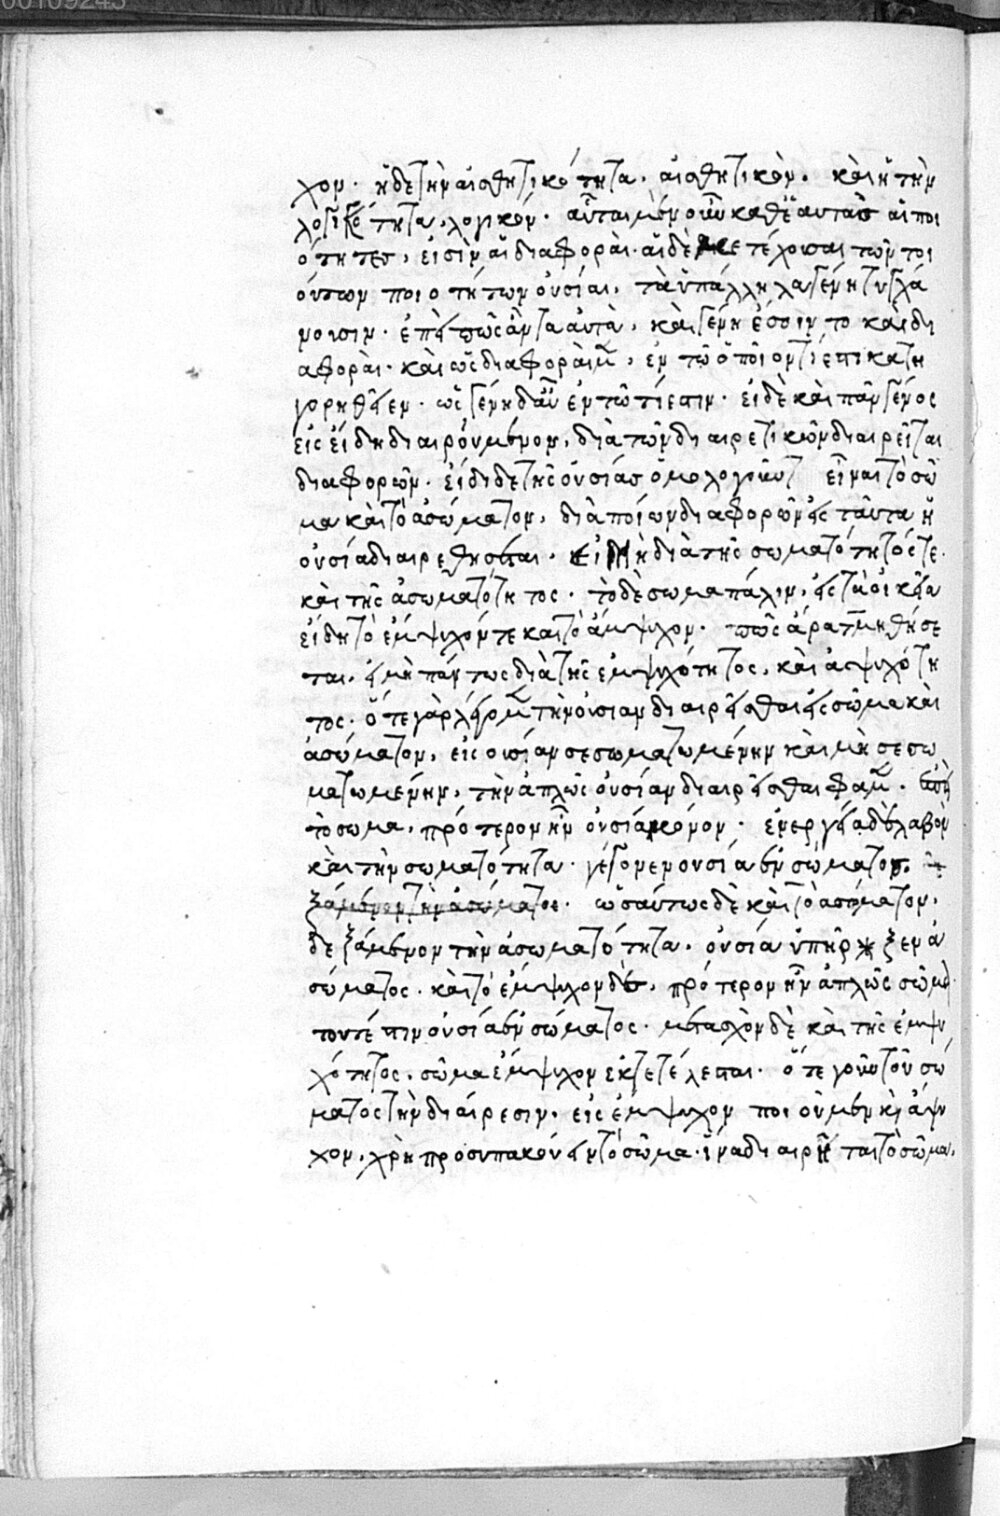 00109243
χον· ἡ δὲ τὴν αἰσθητικότητα, αἰσθητικόν. καὶ ἡ τὴν
λογικότητα, λογικόν· αὗται μὲν οὖν καθ' ἑαυτὰς αἱ ποι
ότητες, εἰσὶν αἱ διαφοραί· αἱ δὲ μετέχουσαι τῶν τοι
ούτων ποιοτήτων οὐσίαι, τὰ ὑπάλληλα γένη τυγχά
νουσιν· ἐπεὶ πῶς ἂν ταυτὰ, καὶ γένη ἐστιν το καὶ δι
αφοραί· καὶ ὡς διαφοραὶ μὲν, ἐν τῷ ὁποῖον τί ἐστι κατη
γορηθεῖεν· ὡς γένη δ' αὖ ἐν τῷ τί ἐστιν· εἰ δὲ καὶ πᾶν γένος
εἰς εἴδη διαιρούμενον, διὰ τῶν διαιρετικῶν διαιρεῖται
διαφορῶν· εἴδι δὲ τῆς οὐσίας ὁμολογοῦντ εἶναι τὸ σῶ
μα καὶ τὸ ἀσώματον, διὰ ποίων διαφορῶν εἰς ταῦτα ἡ
οὐσία διαιρεθήσεται· εἰ μὴ διὰ τῆς σωματότητός τε.
καὶ τῆς ἀσωματότητος· τὸ δὲ σῶμα πάλιν, εἰς τὰ οἰκεῖα
εἴδη τὸ ἔμψυχόν τε καὶ τὸ ἄμψυχον· πῶς ἄρα τμηθήσε
ται, εἰ μὴ πάντως διὰ τῆς ἐμψυχότητος, καὶ ἀψυχότη
τος· ὅτε γὰρ λέγομεν τὴν οὐσίαν διαιρεῖσθαι εἰς σῶμα καὶ
ἀσώματον, εἰς οὐσίαν σεσωματωμένην καὶ μὴ σεσω
ματωμένην, τὴν ἁπλῶς οὐσίαν διαιρεῖσθαι φαμὲν·
τὸ σῶμα, πρότερον ἦν οὐσία μόνον· ἐνεργείᾳ δὲ λαβὸν
καὶ τὴν σωματότητα· γέγονεν οὐσία ἐνσώματος.
ξάμενον τὴν ἀσώματος· ὡσαύτως δὲ καὶ τὸ ἀσώματον,
δεξάμενον τὴν ἀσωματότητα, οὐσία ὑπῆρξεν ἀ
σώματος· καὶ τὸ ἔμψυχον δὲ, πρότερον ἦν ἁπλῶς σῶμα·
τουτέστιν οὐσία ἐνσώματος· μετασχὸν δὲ καὶ τῆς ἐμψυ
χότητος, σῶμα ἔμψυχον ἐκτετέλεσται· ὅτε γοῦν τοῦ σώ
ματος τὴν διαίρεσιν, εἰς ἔμψυχον ποιοῦμεν κὶ ἄψυ
χον, χρὴ προσυπακούειν τὸ σῶμα· ἵνα διαιρῆται τὸ σῶμα,